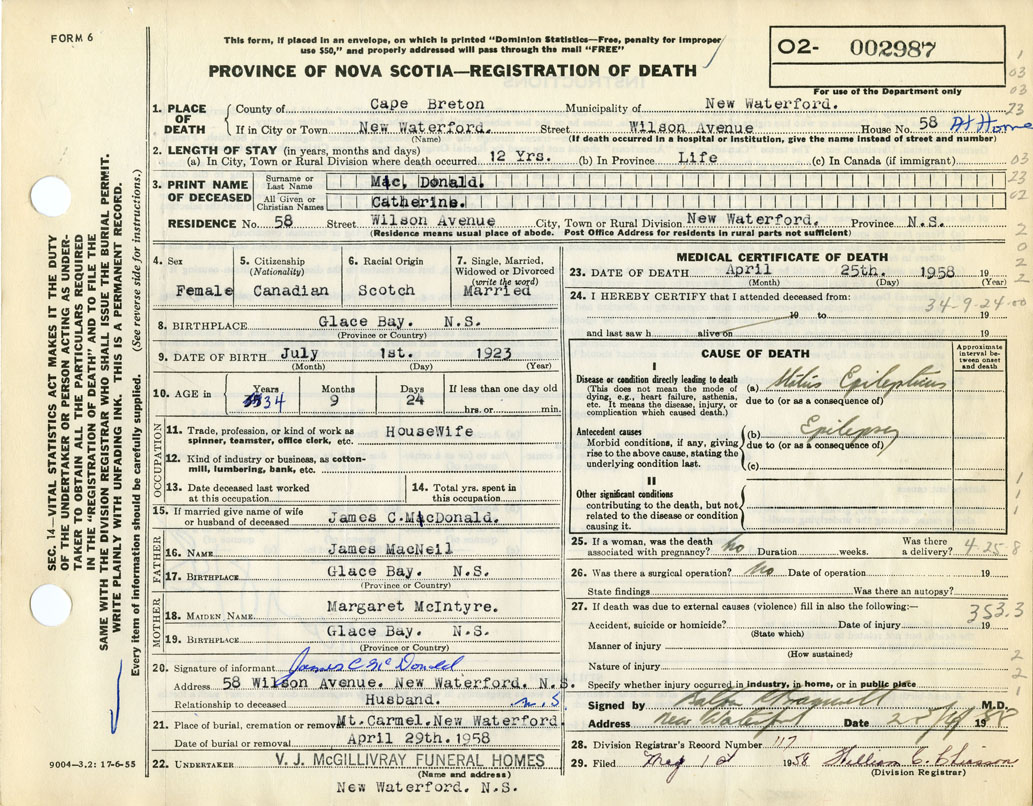 FORM 6
This form, if placed in an envelope, on which is printed "Dominion Statistics—Free, penalty for improper
use $50," and properly addressed will pass through the mail "FREE"
PROVINCE OF NOVA SCOTIA—REGISTRATION OF DEATH
02- 002987
For use of the Department only
1. PLACE OF DEATH
County of Cape Breton Municipality of New Waterford.
If in City or Town New Waterford. Street Wilson Avenue House No. 58 At Home
(Name) (If death occurred in a hospital or institution, give the name instead of street and number)
2. LENGTH OF STAY (in years, months and days)
(a) In City, Town or Rural Division where death occurred 12 Yrs. (b) In Province Life (c) In Canada (if immigrant)
3. PRINT NAME OF DECEASED
Surname or Last Name Mac. Donald.
All Given or Christian Names Catherine.
RESIDENCE No. 58 Street Wilson Avenue City, Town or Rural Division New Waterford. Province N.S.
(Residence means usual place of abode. Post Office Address for residents in rural parts not sufficient)
4. Sex
Female
5. Citizenship
(Nationality)
Canadian
6. Racial Origin
Scotch
7. Single, Married,
Widowed or Divorced
(write the word)
Married
8. BIRTHPLACE Glace Bay. N.S.
(Province or Country)
9. DATE OF BIRTH July 1st. 1923
(Month) (Day) (Year)
10. AGE in
Years Months Days If less than one day old
34 9 24 hrs. or min.
OCCUPATION
11. Trade, profession, or kind of work as
spinner, teamster, office clerk, etc. HouseWife
12. Kind of industry or business, as cotton-
mill, lumbering, bank, etc.
13. Date deceased last worked
at this occupation
14. Total yrs. spent in
this occupation
15. If married give name of wife
or husband of deceased James C.MacDonald.
FATHER
16. NAME James MacNeil
17. BIRTHPLACE Glace Bay. N.S.
(Province or Country)
MOTHER
18. MAIDEN NAME Margaret McIntyre.
19. BIRTHPLACE Glace Bay. N.S.
(Province or Country)
20. Signature of informant James C McDonald
Address 58 Wilson Avenue. New Waterford. N.S.
Relationship to deceased Husband. N.S
21. Place of burial, cremation or removal Mt.Carmel.New Waterford.
Date of burial or removal April 29th.1958
22. UNDERTAKER V. J. McGILLIVRAY FUNERAL HOMES
(Name and address)
New Waterford. N.S.
MEDICAL CERTIFICATE OF DEATH
23. DATE OF DEATH April 25th. 1958 19
(Month) (Day) (Year)
24. I HEREBY CERTIFY that I attended deceased from:
34-9-24-00
19 to 19
and last saw h alive on 19
CAUSE OF DEATH
Approximate
interval be-
tween onset
and death
I
Disease or condition directly leading to death
(This does not mean the mode of
dying, e.g., heart failure, asthenia,
etc. It means the disease, injury, or
complication which caused death.)
(a) Status Epilepticus
due to (or as a consequence of)
Antecedent causes
Morbid conditions, if any, giving
rise to the above cause, stating the
underlying condition last.
(b) Epilepsy
due to (or as a consequence of)
(c)
II
Other significant conditions
contributing to the death, but not
related to the disease or condition
causing it.
25. If a woman, was the death
associated with pregnancy? No Duration weeks. Was there
a delivery? 4-25-8
26. Was there a surgical operation? No Date of operation 19
State findings Was there an autopsy?
27. If death was due to external causes (violence) fill in also the following:—
353.3
Accident, suicide or homicide? Date of injury 19
(State which)
Manner of injury
(How sustained)
Nature of injury
Specify whether injury occurred in industry, in home, or in public place
Signed by M.D.
Address New Waterford Date 1958
28. Division Registrar's Record Number 117
29. Filed May 1st 1958 William C. Chiasson
(Division Registrar)
SEC. 14—VITAL STATISTICS ACT MAKES IT THE DUTY
OF THE UNDERTAKER OR PERSON ACTING AS UNDER-
TAKER TO OBTAIN ALL THE PARTICULARS REQUIRED
IN THE "REGISTRATION OF DEATH" AND TO FILE THE
SAME WITH THE DIVISION REGISTRAR WHO SHALL ISSUE THE BURIAL PERMIT.
WRITE PLAINLY WITH UNFADING INK. THIS IS A PERMANENT RECORD.
Every item of information should be carefully supplied. (See reverse side for instructions.)
9004—3.2: 17-6-55
1
03
03
23
03
23
02
2
0
2
2
1
1
1
2
2
1